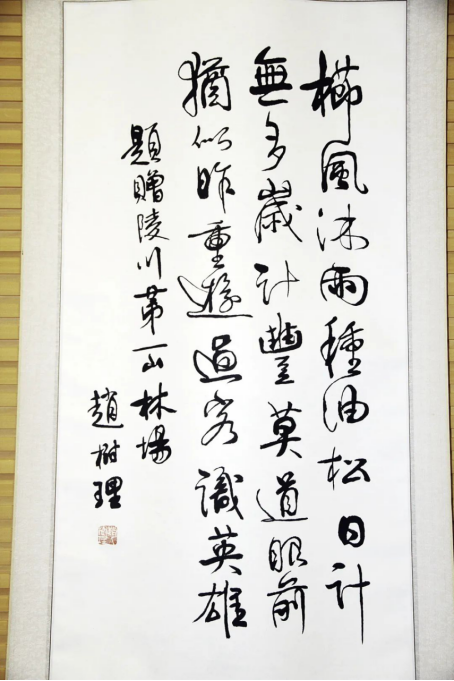 櫛風沐雨種油松日計
無多歲計豐莫道眼前
猶似昨重遊過客識英雄
題贈陵川第一山林場
趙樹理